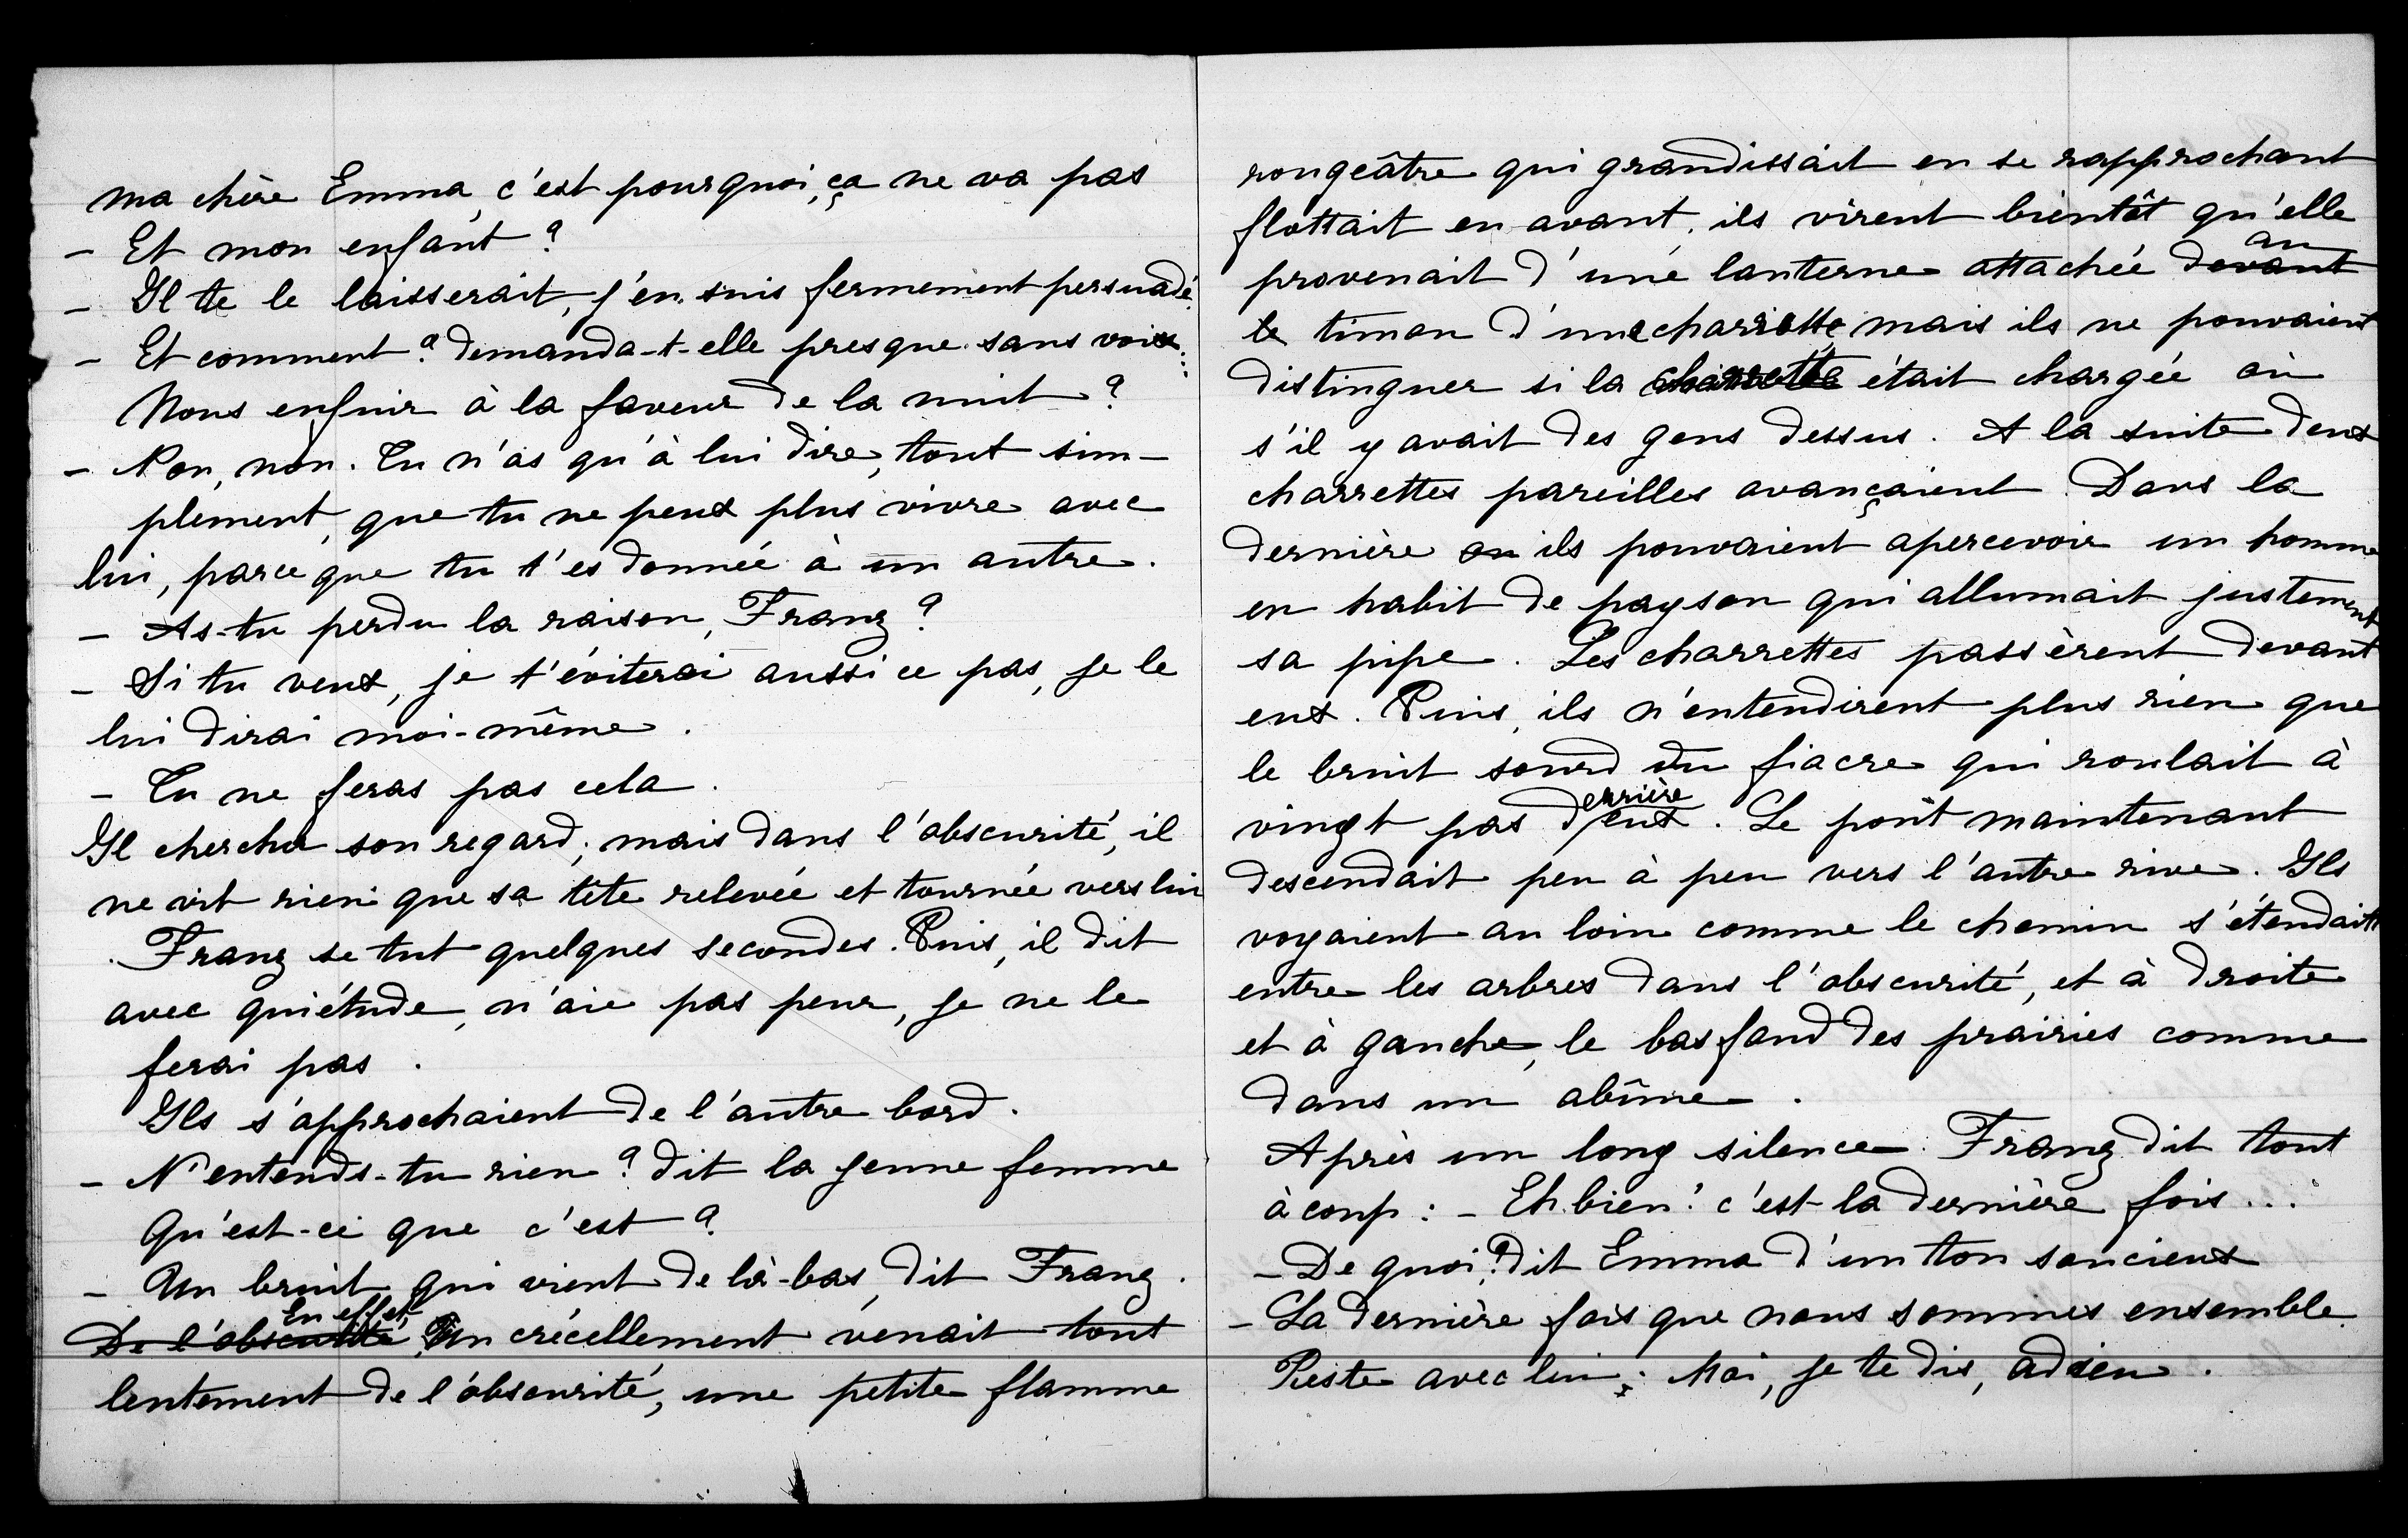 ma chère Emma, c'est pourquoi, ça ne va pas
- Et mon enfant ?
- Il te le laisserait, j'en suis fermement persuadé.
- Et comment ? demanda-t-elle presque sans voix...
Nous enfuir à la faveur de la nuit ?
- Non, non. Tu n'as qu'à lui dire, tout sim-
plement, que tu ne peux plus vivre avec
lui, parce que tu t'es donnée à un autre.
- As-tu perdu la raison, Franz ?
- Si tu veux, je t'éviterai aussi ce pas, je le
lui dirai moi-même.
- Tu ne feras pas cela.
Il chercha son regard ; mais dans l'obscurité, il
ne vit rien que sa tête relevée et tournée vers lui
Franz se tut quelques secondes. Puis, il dit
avec quiétude, n'aie pas peur, je ne le
ferai pas.
Ils s'approchaient de l'autre bord.
- N'entends-tu rien ? dit la jeune femme
Qu'est-ce que c'est ?
- Un bruit qui vient de là-bas, dit Franz.
En effet,
De l'obscurité Un crécellement venait tout
lentement de l'obscurité, une petite flamme
rougeâtre qui grandissait en se rapprochant
flottait en avant, ils virent bientôt qu'elle
au
provenait d'une lanterne attachée devant
le timon d'une charriotte mais ils ne pouvaient
distinguer si la charrette était chargée où
s'il y avait des gens dessus. A la suite deux
charrettes pareilles avançaient. Dans la
dernière on ils pouvaient apercevoir un homme
en habit de paysan qui allumait justement
sa pipe. Les charrettes passèrent devant
eux. Puis, ils n'entendirent plus rien que
le bruit sourd du fiacre qui roulait à
errière
vingt pas d'eux. Le pont maintenant
descendait peu à peu vers l'autre rive. Ils
voyaient au loin comme le chemin s'étendait
entre les arbres dans l'obscurité, et à droite
et à gauche, le bas fond des prairies comme
dans un abîme.
Après un long silence Franz dit tout
à coup : - Eh bien ! c'est la dernière fois...
- De quoi ? dit Emma d'un ton soucieux
- La dernière fois que nous sommes ensemble.
Reste avec lui ; Moi, je te dis, adieu.